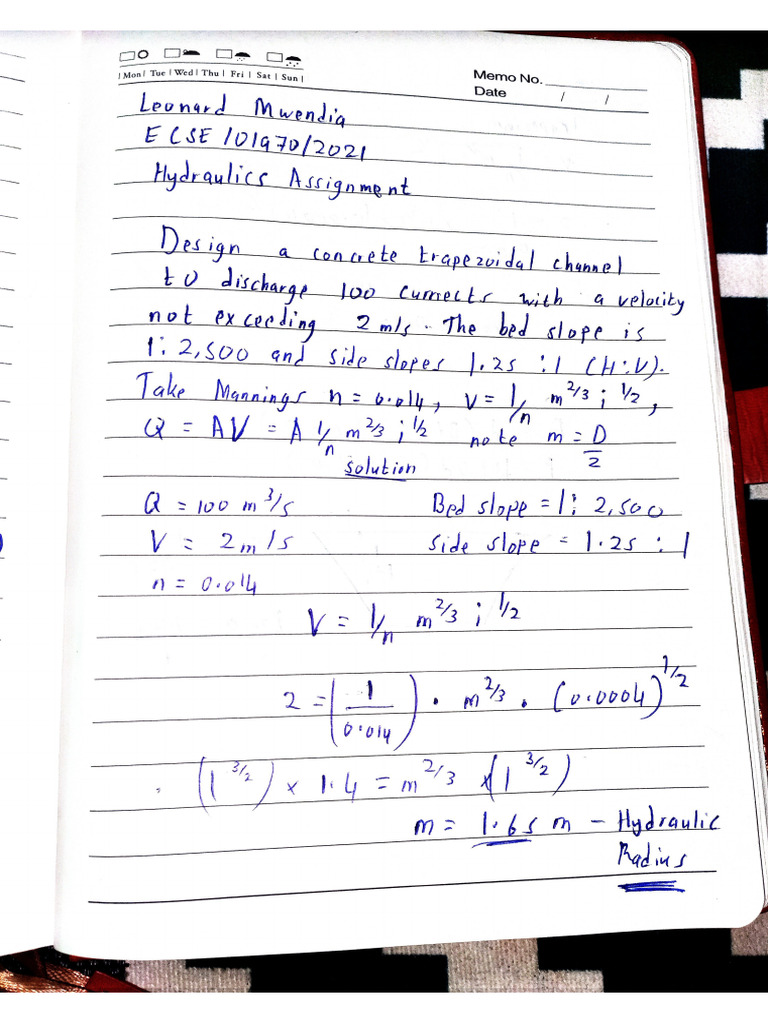 | Mon | Tue | Wed | Thu | Fri | Sat | Sun |
Memo No.
Date / /
Leonard Mwendia
ECSE/01970/2021
Hydraulics Assignment
Design a concrete trapezoidal channel
to discharge 100 cumects with a velocity
not exceeding 2 m/s. The bed slope is
1:2,500 and side slopes 1.25 :1 (H:V).
Take Mannings n = 0.014, v = 1/n m^2/3 i^1/2,
Q = AV = A 1/n m^2/3 i^1/2 note m = D/2
solution
Q = 100 m^3/s Bed slope = 1: 2,500
V = 2 m/s side slope = 1.25 : 1
n = 0.014
V = 1/n m^2/3 i^1/2
2 = (1/0.014) • m^2/3 • (0.0004)^1/2
(1^3/2) × 1.4 = m^2/3 × (1^3/2)
m = 1.65 m – Hydraulic
Radius